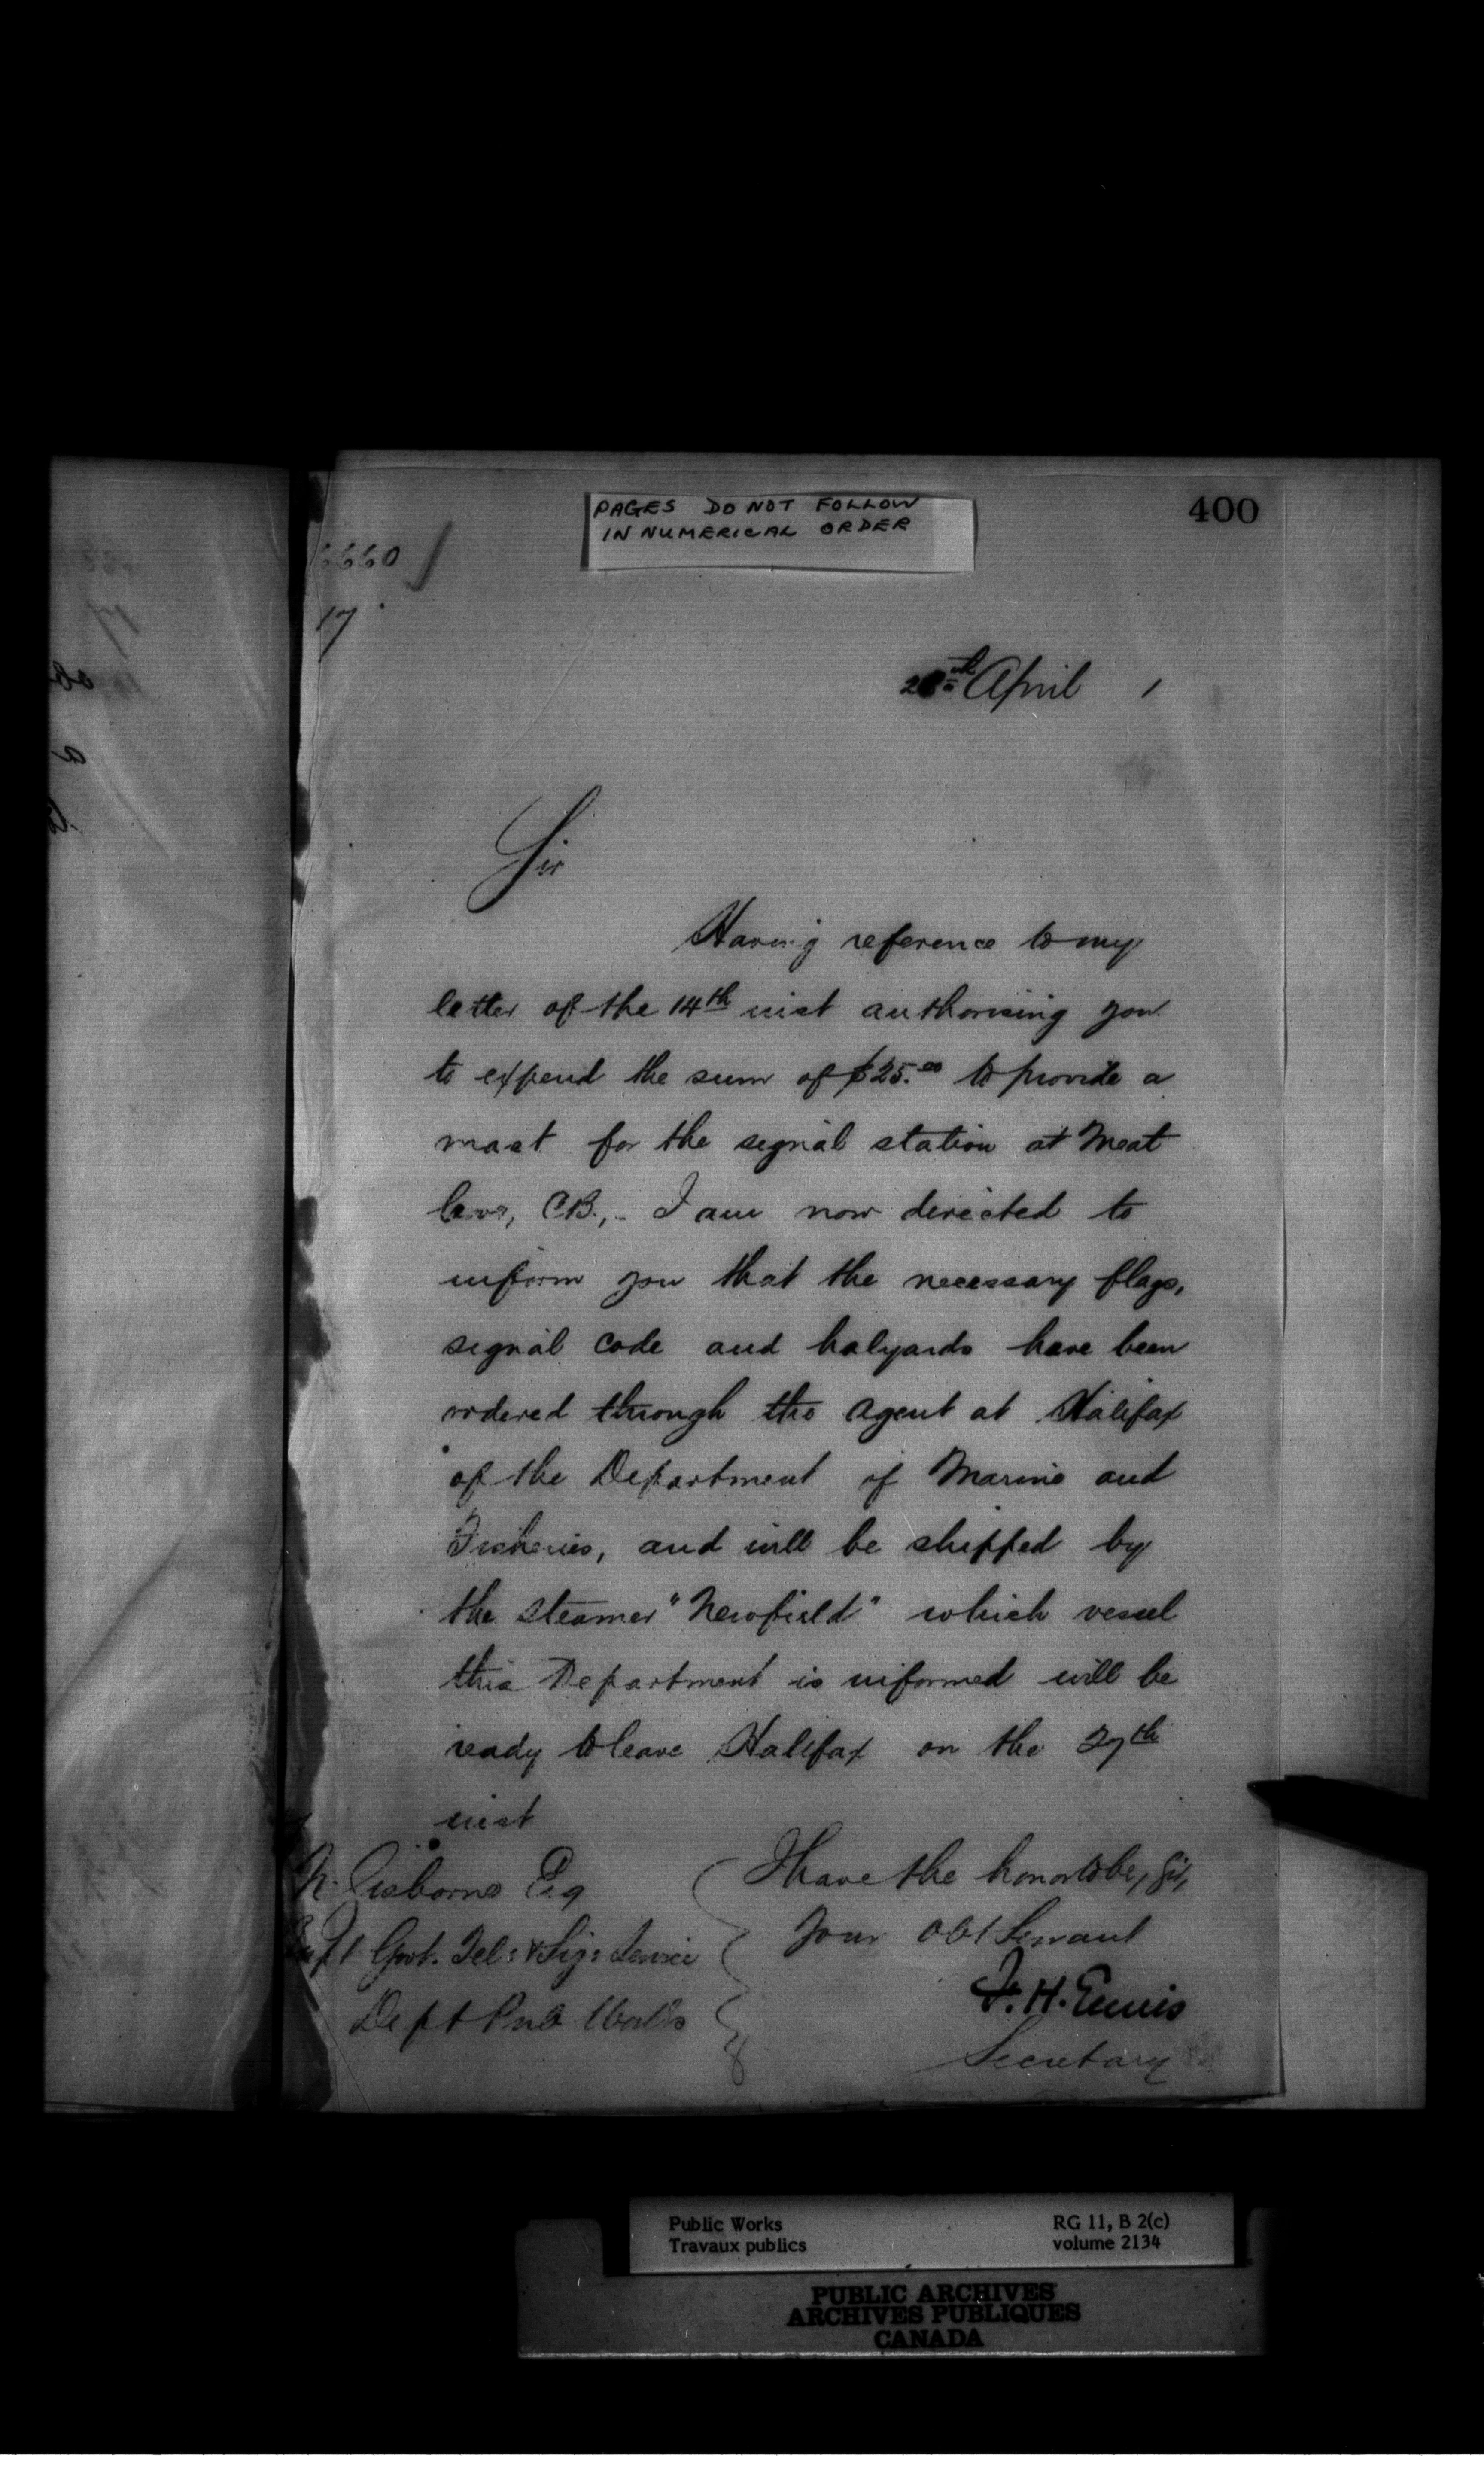 PAGES DO NOT FOLLOW
IN NUMERICAL ORDER
400
6660
17
April 1
Sir
Having reference to my
letter of the 14th inst authorising you
to expend the sum of $25.00 to provide a
mast for the signal station at Meat
Cove, C.B., - I am now directed to
inform you that the necessary flags,
signal code and halyards have been
ordered through the Agent at Halifax
of the Department of Marine and
Fisheries, and will be shipped by
the steamer "Newfield" which vessel
this Department is informed will be
ready to leave Halifax on the 27th
inst
I have the honor to be, Sir,
Your Obt Servant
F. H. Ennis
Secretary
N. Gisborne Esq
Supt Govt. Tel: & Sig: Service
Dept Pub Works
Public Works
Travaux publics
RG 11, B 2(c)
volume 2134
PUBLIC ARCHIVES
ARCHIVES PUBLIQUES
CANADA